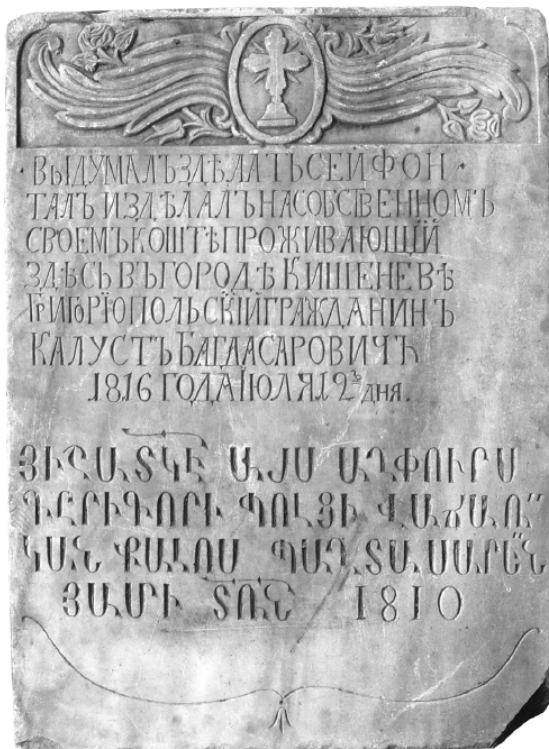 · ВЫДУМАЛЪ ЗДѢЛАТЬ СЕИ ФОН ·
ТАЛЪ И ЗДѢЛАЛЪ НА СОБСТВЕННОМЪ
СВОЕМЪ КОШТѢ ПРОЖИВАЮЩІЙ
ЗДѢСЬ ВЪ ГОРОДѢ КИШЕНЕВѢ
ГРИГОРІОПОЛЬСКІЙ ГРАЖДАНИНЪ
КАЛУСТЪ БАГДАСАРОВИЧЪ
1816 ГОДА ІЮЛЯ 12ъ ДНЯ.
ՅԻՇԱՏԿԷ ԱՅՍ ԱՂԲԻՒՐՍ
ՊՕԼՑԻ ՎԱՃԱՌ՟
ԿԱՆ ՔԱԼՈՍ ՊԱՂՏԱՍԱՐԵՆ
ՅԱՄԻ ՏՌՆ 1810